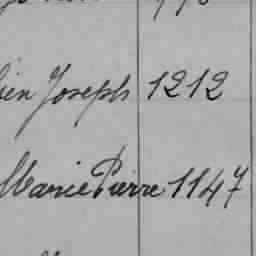 ien Joseph 1212
Marie Pierre 1147